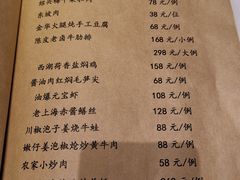 78 元/例
东坡肉 38 元/位
金华火腿炖手工豆腐 68 元/例
陈皮老卤牛肋排 168 元/小例
298 元/大例
西湖荷香盐焗鸡 158 元/例
酱油肉红焖毛笋尖 68 元/例
油爆元宝虾 108 元/例
老上海赤酱鳝丝 128 元/例
川椒泡子姜烧牛蛙 88 元/例
嫩仔姜泡椒炝炒黄牛肉 88 元/例
农家小炒肉 58 元/例